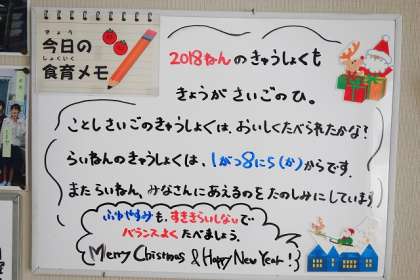 きょう
今日の
しょくいく
食育メモ
2018ねんのきゅうしょくも
きょうがさいごのひ。
ことしさいごのきゅうしょくは、おいしくたべられたかな？
らいねんのきゅうしょくは、1がつ8にち(か)からです。
またらいねん、みなさんにあえるのをたのしみにしています
ふゆやすみも、すききらいしないで
バランスよくたべましょう。
Merry Christmas & Happy New Year!